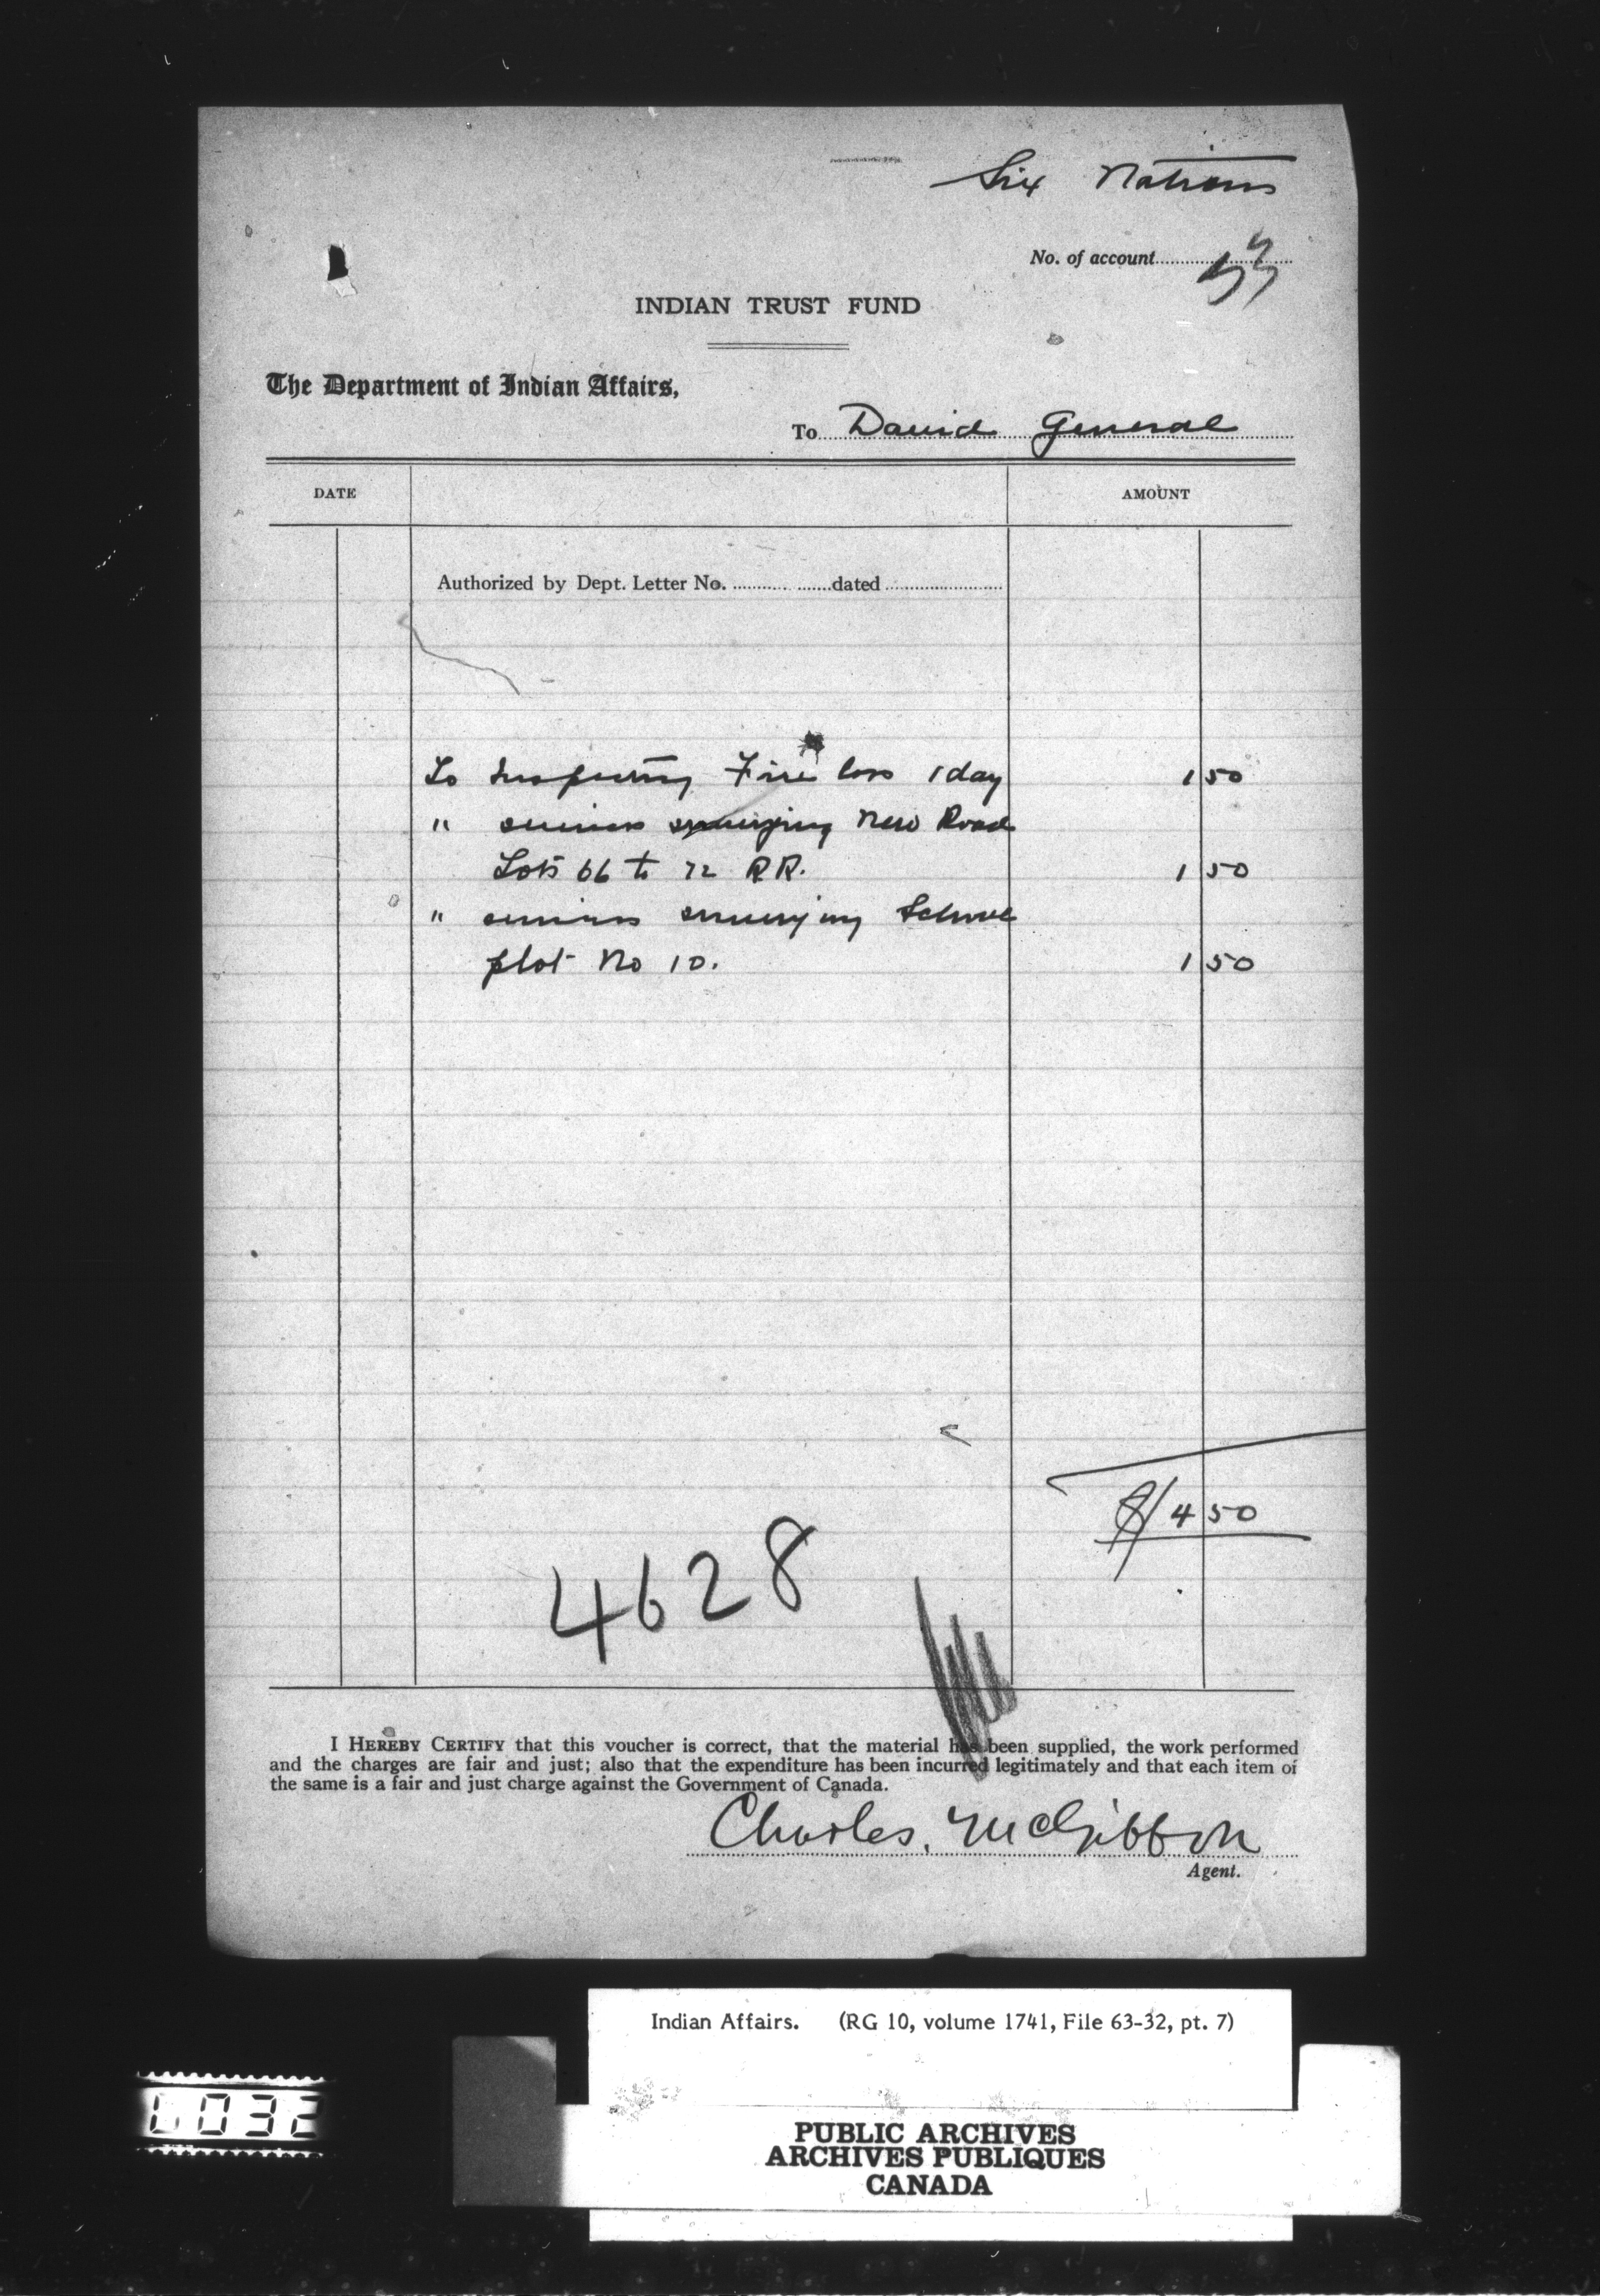 Six Nations
No. of account
INDIAN TRUST FUND
The Department of Indian Affairs,
To David General
DATE AMOUNT
Authorized by Dept. Letter No. dated
To Inspecting Fire loss 1 day 1 50
" services surveying New Road
Lots 66 to 72 R R. 1 50
" services surveying School
plot No 10. 1 50
$ 4 50
4628
I HEREBY CERTIFY that this voucher is correct, that the material has been supplied, the work performed
and the charges are fair and just; also that the expenditure has been incurred legitimately and that each item of
the same is a fair and just charge against the Government of Canada.
Charles McGibbon
Agent.
Indian Affairs. (RG 10, volume 1741, File 63-32, pt. 7)
PUBLIC ARCHIVES
ARCHIVES PUBLIQUES
CANADA